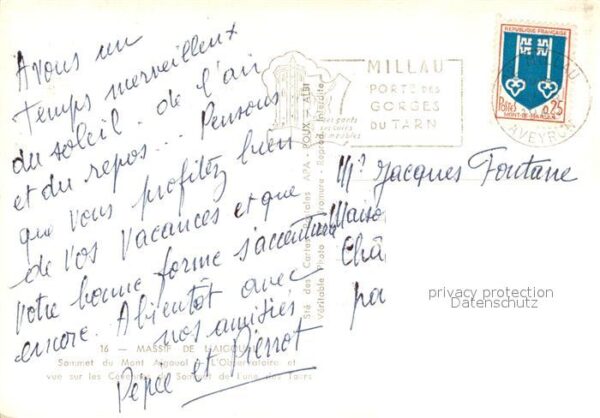 Avons un
temps merveilleux
du soleil. de l'air
et du repos... Pensons
que vous profitez bien
de vos vacances et que
votre bonne forme s'accentue
encore. A bientôt avec
nos amitiés
Pepée et Pierrot
16 - MASSIF DE L'AIGOUAL
Sommet du Mont Aigoual - L'Observatoire et
vue sur les Cévennes
Sté des Cartes Postales APA - POUX - ALBI
Véritable Photo Bromure - Reprod. Interdite
MILLAU
PORTE DES
GORGES
DU TARN
REPUBLIQUE FRANÇAISE
Postes 0,25
MONT-DE-MARSAN
AVEYRON
Mr Jacques Fontane
Maiso
Châ
pa
privacy protection
Datenschutz